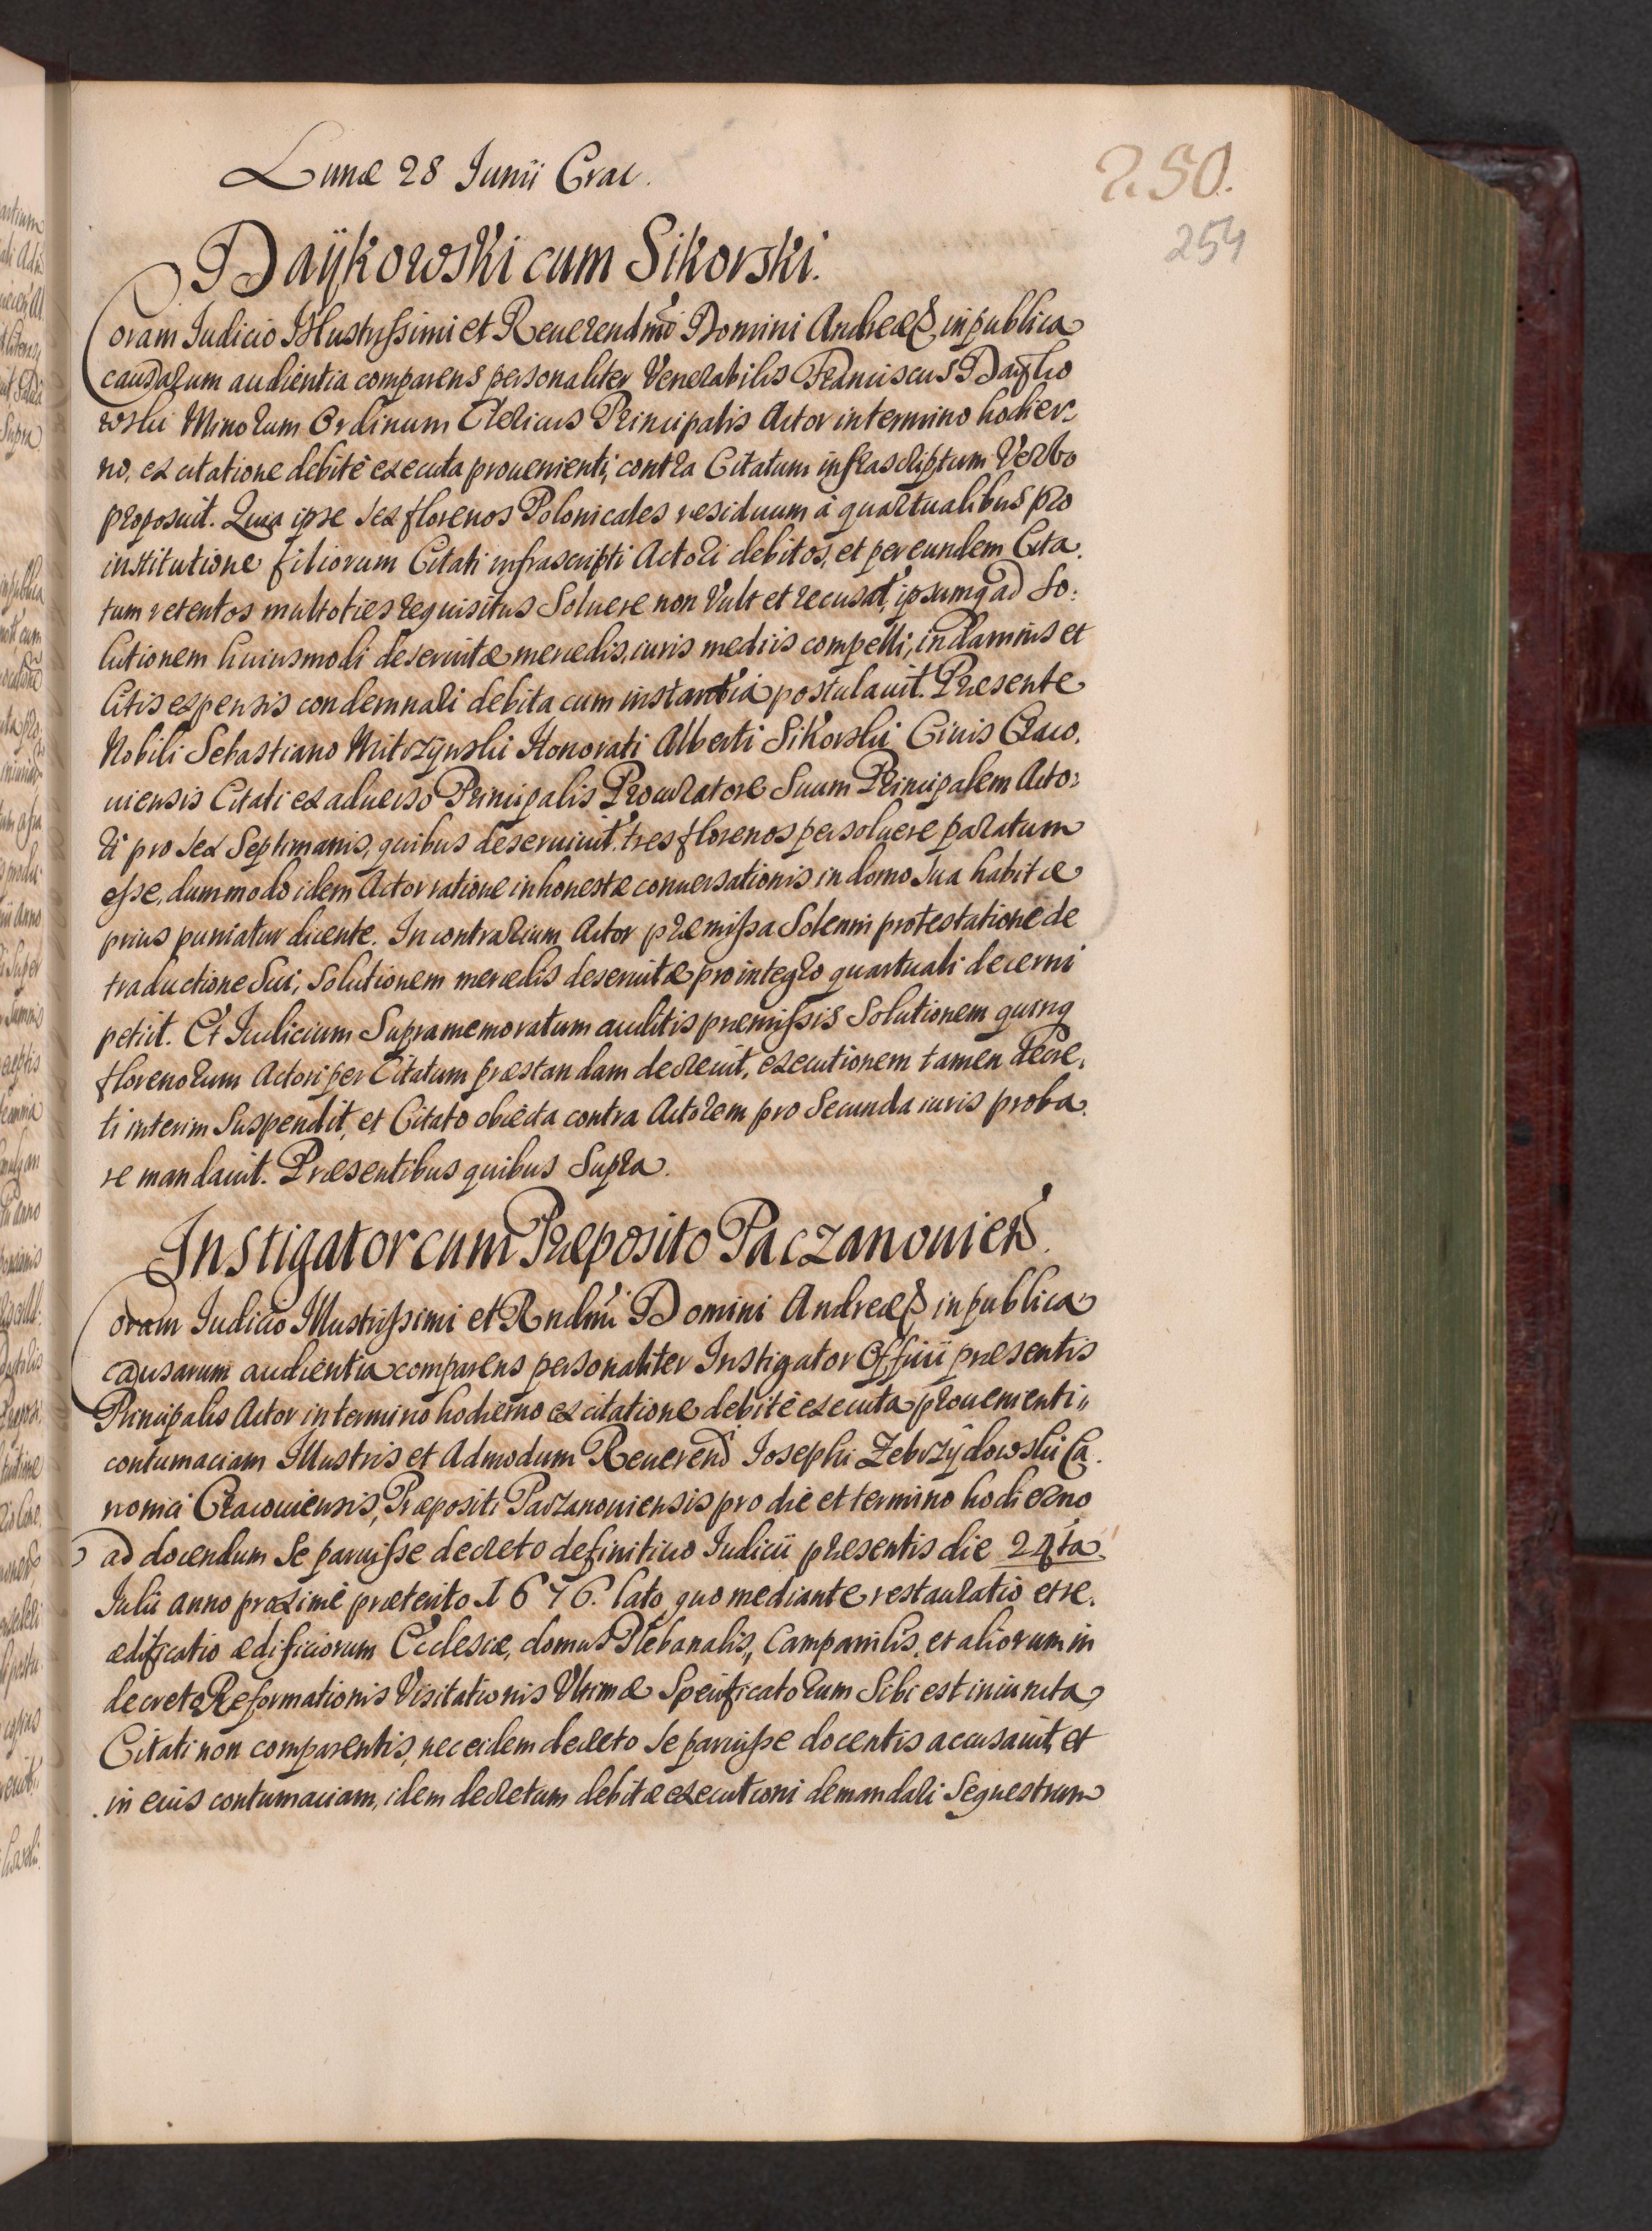 Lunæ 28 Junii Crac.
250.
254
Daÿkowski cum Sikorski.
Coram Judicio Illustrissimi et Reuerendmi Domini Andreæ in publica
causarum audientia comparens personaliter Venerabilis Franciscus Daÿko
wski Minorum Ordinum Clericus Principalis Actor in termino hodier
no, ex citatione debitè executa prouenienti, contra Citatum infrascriptum Verbo
proposuit. Quia ipse sex florenos Polonicales residuum à quartualibus pro
institutione filiorum Citati infrascripti Actori debitos, et per eundem Cita
tum retentos multoties requisitus Soluere non Vult et recusat, ipsumq ad So:
lutionem huiusmodi deseruitæ mercedis, iuris mediis compelli, in damnis et
litis expensis condemnari debita cum instantia postulauit. Præsente
Nobili Sebastiano Mitrzÿnski Honorati Alberti Sikorski Ciuis Craco,
uiensis Citati ex aduerso Principalis Procuratore Suum Principalem Acto:
ri pro sex Septimanis, quibus deseruiuit, tres florenos persoluere paratum
esse, dummodo idem Actor ratione inhonestæ conuersationis in domo sua habitæ
prius puniatur dicente. In contrarium Actor præmissa Solenni protestatione de
traductione Sui, Solutionem mercedis deseruitæ pro integro quartuali decerni
petiit. Et Iudicium Supramemoratum auditis præmissis Solutionem quinq
florenorum Actori per Citatum præstandam decreuit, executionem tamen decre,
ti interim Suspendit, et Citato obiecta contra Actorem pro Secunda iuris proba,
re mandauit. Præsentibus quibus Supra.
Instigator cum Præposito Paczanouien.
Coram Judicio Illustrissimi et Rndmi Domini Andreæ in publica
causarum audientia comparens personaliter Instigator Officii præsentis
Principalis Actor in termino hodierno ex citatione debitè executa prouenienti
contumaciam Illustris et Admodum Reuerend Josephi Zebrzÿdowski Ca
nonici Cracouiensis, Præpositi Paczanouiensis pro die et termino hodierno
ad docendum Se paruisse decreto definitiuo Iudicii præsentis die 24ta
Julii anno proximè præterito 1676. lato, quo mediante restauratio et re,
ædificatio ædificiorum Ecclesiæ, domus Plebanalis, Campanilis, et aliorum in
decreto Reformationis Visitationis Vltimæ Specificatorum Sibi est iniuncta,
Citati non comparentis, nec eidem decreto Se paruisse docentis accusauit, et
in eius contumaciam, idem decretum debitæ executioni demandari Sequestrum